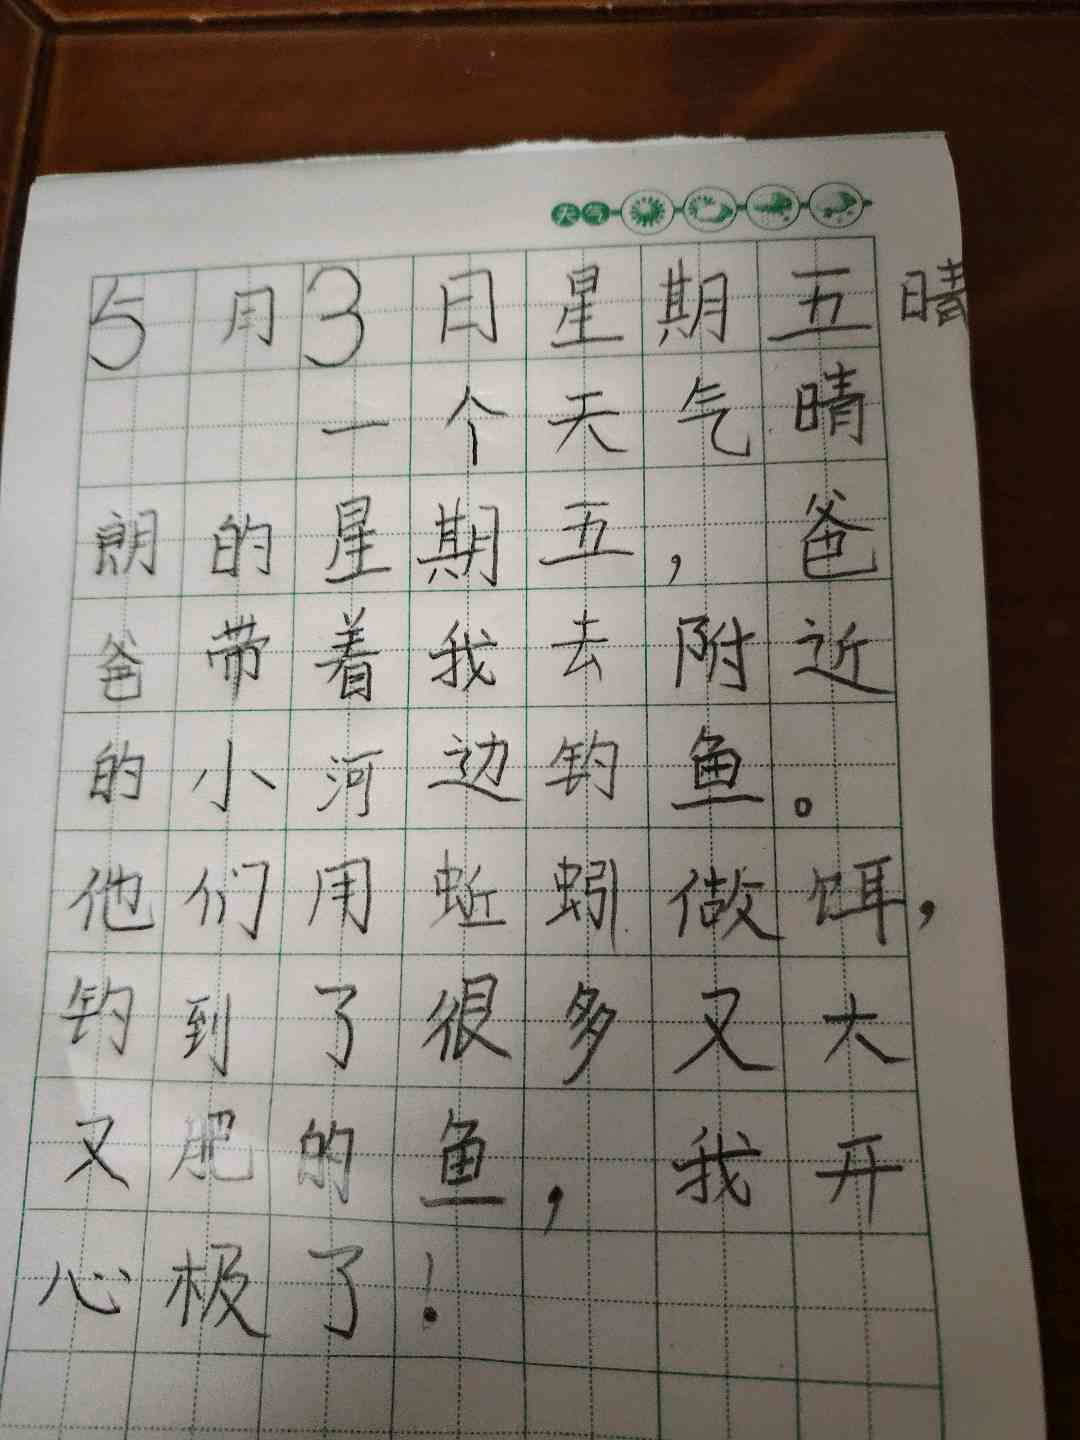 天气
5月3日星期五 晴
一个天气晴
朗的星期五，爸
爸带着我去附近
的小河边钓鱼。
他们用蚯蚓做饵，
钓到了很多又大
又肥的鱼，我开
心极了！